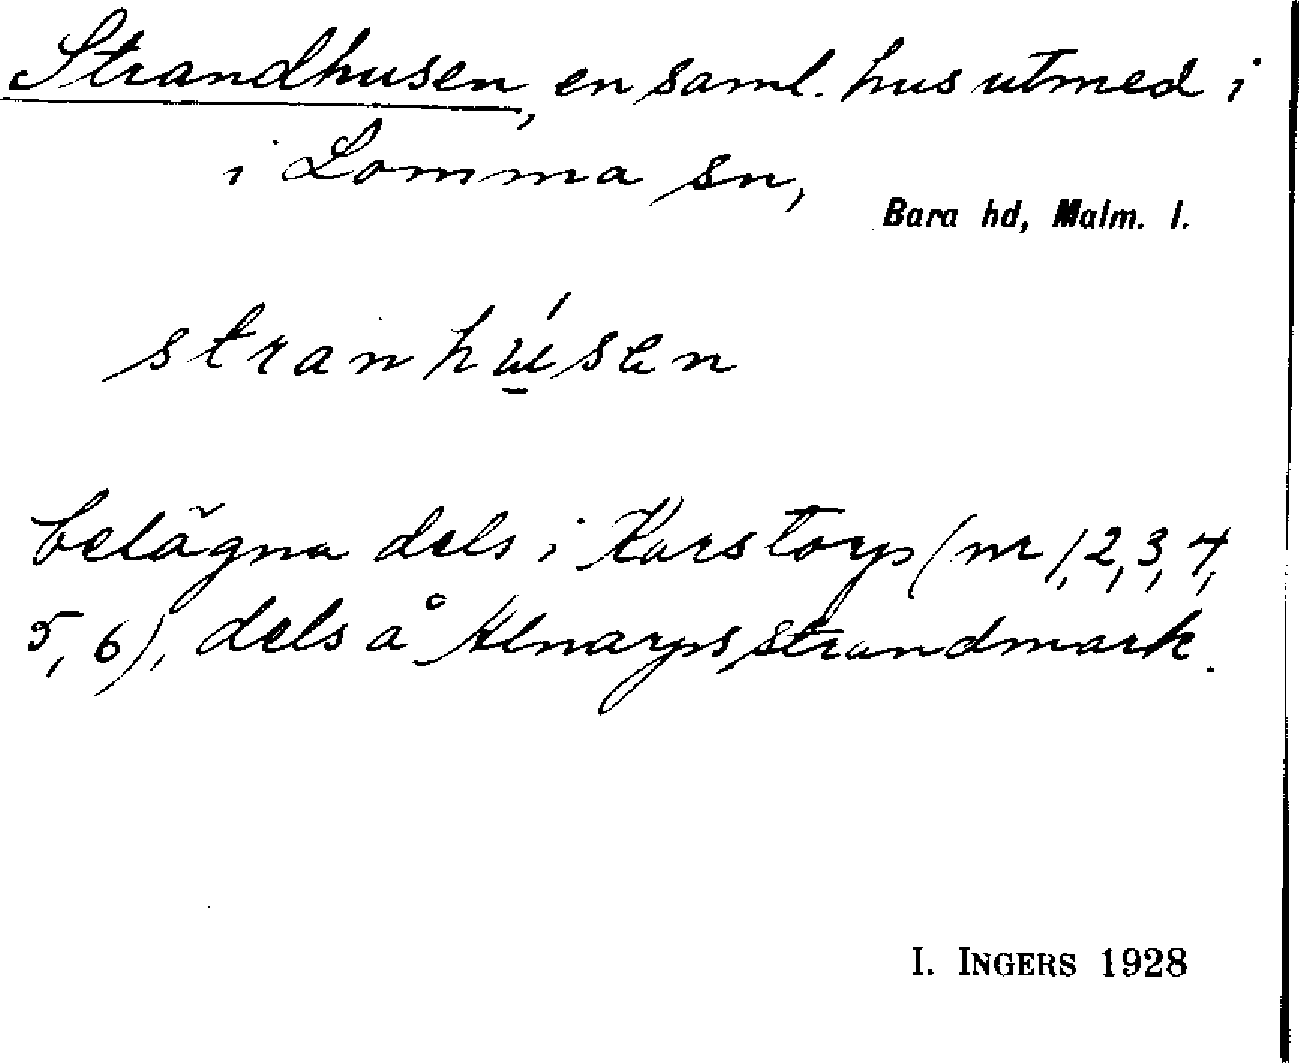 Strandhusen, en saml. hus utmed i
i Lomma sn,
Bara hd, Malm. l.
stranhu̱´sen
belägna dels i Karstorp (nr 1, 2, 3, 4,
5, 6), dels å Alnarps strandmark.
I. INGERS 1928